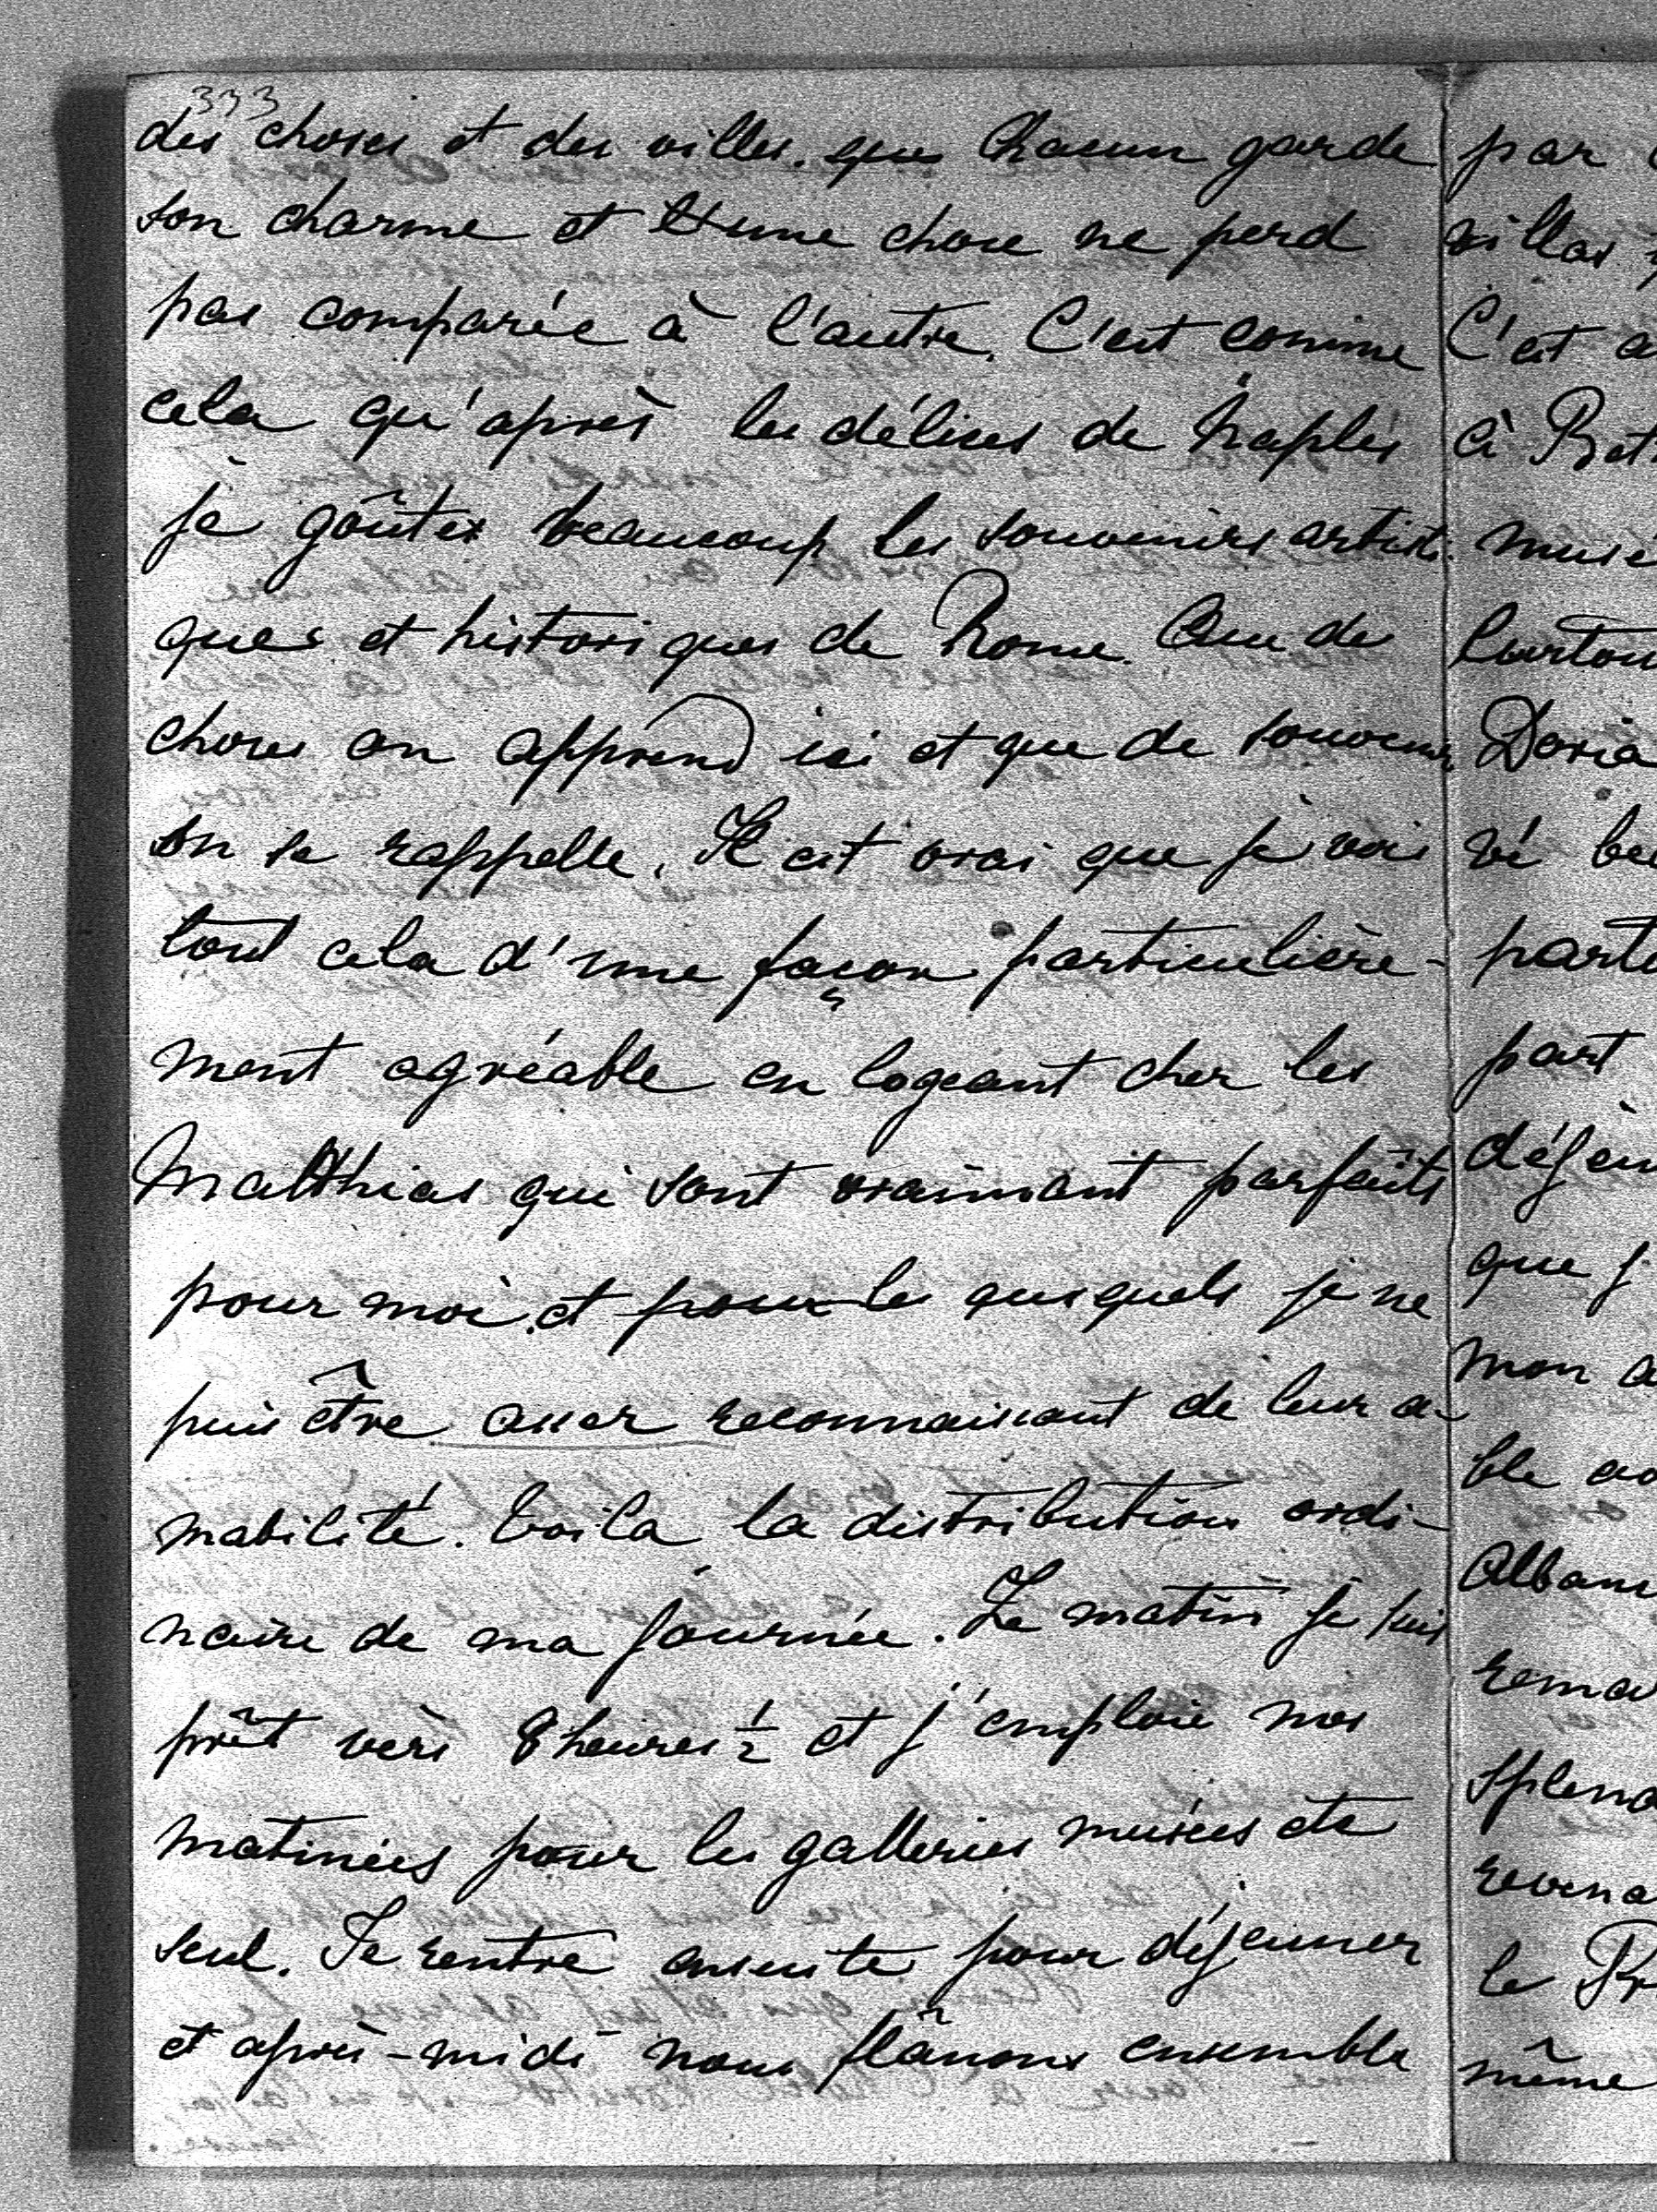 333
des choses et des villes. que Chacun garde
son charme et l'une chose ne perd
pas comparée à l'autre. C'est comme
cela qu'après les délices de Naples
je goûte beaucoup les souvenirs artisti-
ques et historiques de Rome. Que de
choses on apprend ici et que de souvenirs
on se rappelle. Il est vrai que je vois
tout cela d'une façon particulière-
ment agréable en logeant chez les
Matthias qui sont vraimant parfaits
pour moi et pour les quisquels je ne
puis être assez reconnaissant de leur a-
mabilité. Voila la distribution ordi-
naire de ma journée. Le matin je suis
prêt vers 8 heures ½ et j'emploie mes
matinées pour les galleries musées etc
seul. Je rentre ensuite pour déjeuner
et après-midi nous flânons ensemble
par
villas
C'est
à
Doria
vé
part
que j
mon
ble
le
même